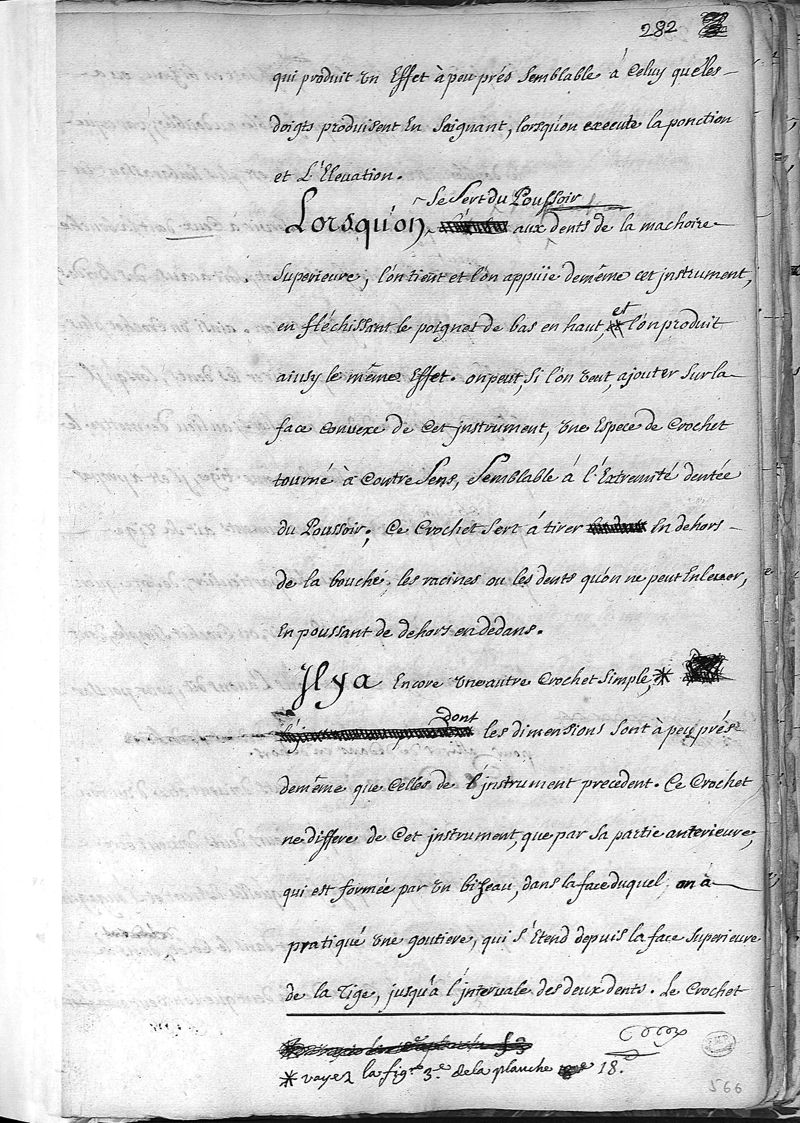 282
qui produit un Effet à peu prés semblable à Celuy que les
doigts produisent En soignant, lorsqu'on execute la ponction
et L'Elevation.
se sert du Poussoir
Lorsqu'on aux dents de la machoire
superieure, l'on tient et l'on appuïe de même cet jnstrument,
et
en fléchissant le poignet de bas en haut, l'on produit
ainsy le même Effet. on peut, si l'on veut, ajouter sur la
face convexe de Cet jnstrument, une Espece de Crochet
tourné à Contre sens, semblable à l'Extremité dentée
du Poussoir; Ce Crochet sert à tirer En dehors
de la bouche, les racines ou les dents qu'on ne peut Enlever,
En poussant de dehors en dedans.
Jl y a Encore une autre Crochet simple, *
dont
les dimensions sont à peu prés
de même que Celles de l'jnstrument precedent. Ce Crochet
ne differe de Cet jnstrument, que par sa partie anterieure,
qui est formée par un bizeau, dans la face duquel, on à
pratiqué une goutiere, qui s'Etend depuis la face superieure
de la Tige, jusqu'à l'jntervale des deux dents. Le Crochet
* voyez la fig.re 3.e de la planche 18.
566